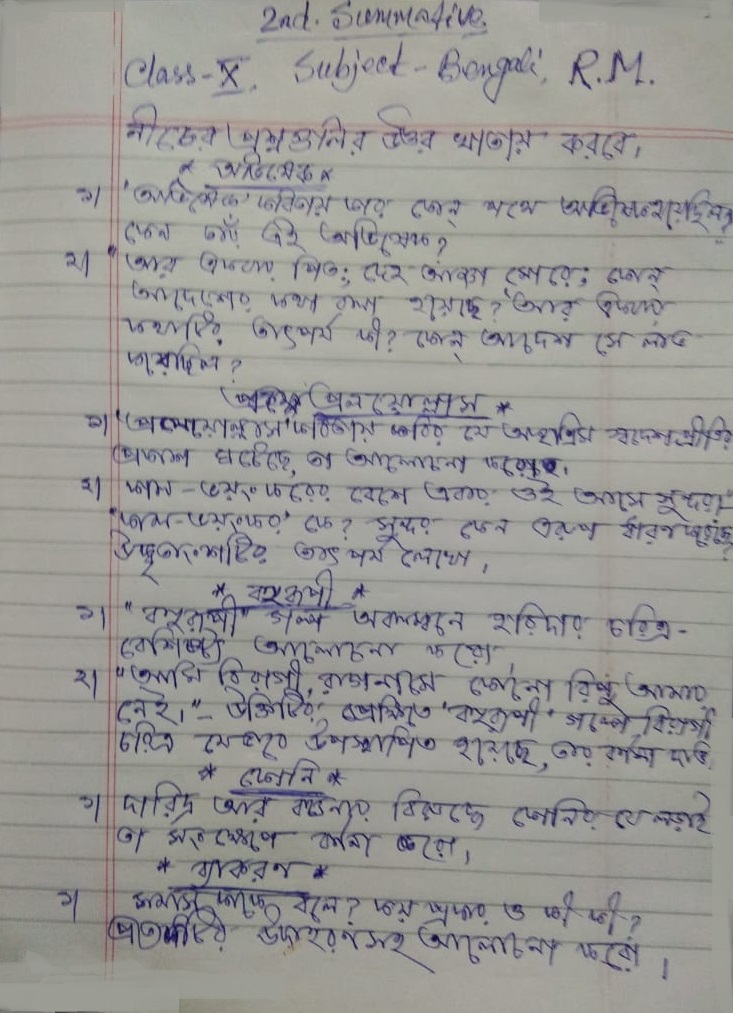 2nd. Summative.
Class-X, Subject-Bengali, R.M.
নীচের প্রশ্নগুলির উত্তর খাতায় করবে।
* অভিষেক *
১। 'অভিষেক' কবিতায় কার কোন্ পদে অভিষেক হয়েছিল?
কেন তাঁর এই অভিষেক?
২। "আর একবার পিতঃ; দেহ আজ্ঞা মোরে; কোন্
আদেশের কথা বলা হয়েছে? 'আর একবার'
কথাটির তাৎপর্য কী? কোন্ আদেশ সে লাভ
করেছিল?
প্রলয়োল্লাস *
১। 'প্রলয়োল্লাস' কবিতায় কবির যে অকৃত্রিম স্বদেশপ্রীতির
প্রকাশ ঘটেছে, তা আলোচনা করো।
২। কাল-ভয়ংকরের বেশে এবার ওই আসে সুন্দর।
'কাল-ভয়ংকর' কে? সুন্দর কেন এরূপ ধারণ করেছে?
উদ্ধৃতাংশটির তাৎপর্য লেখো।
* বহুরূপী *
১। "বহুরূপী" গল্প অবলম্বনে হরিদার চরিত্র-
বৈশিষ্ট্য আলোচনা করো
২। "আমি বিরাগী, রাগ নামে কোনো রিপু আমার
নেই।"- উক্তিটির প্রেক্ষিতে 'বহুরূপী' গল্পে বিরাগী
চরিত্র যেভাবে উপস্থাপিত হয়েছে, তার বর্ণনা দাও
* কোনি *
১। দারিদ্র আর বঞ্চনার বিরুদ্ধে কোনির যে লড়াই
তা সংক্ষেপে বর্ণনা করো।
* ব্যাকরণ *
১। সমাস কাকে বলে? কয় প্রকার ও কী কী?
প্রত্যেকটির উদাহরণসহ আলোচনা করো।